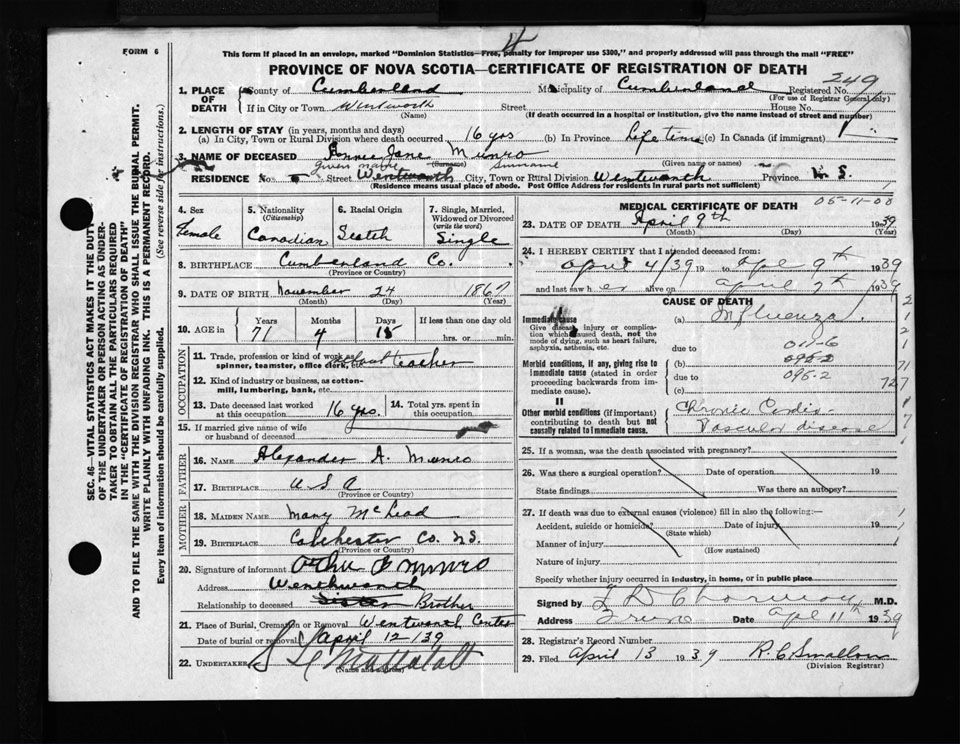 FORM 6
This form if placed in an envelope, marked "Dominion Statistics—Free, penalty for improper use $300," and properly addressed will pass through the mail "FREE"
PROVINCE OF NOVA SCOTIA—CERTIFICATE OF REGISTRATION OF DEATH
249
1. PLACE OF DEATH County of Cumberland Municipality of Cumberland Registered No.
(For use of Registrar General only)
If in City or Town Wentworth Street House No.
(Name) (If death occurred in a hospital or institution, give the name instead of street and number)
2. LENGTH OF STAY (in years, months and days)
(a) In City, Town or Rural Division where death occurred 16 yrs (b) In Province Life time (c) In Canada (if immigrant)
3. NAME OF DECEASED Annie Jane Munro
given name (Surname) Surname (Given name or names)
RESIDENCE No. Street Wentworth City, Town or Rural Division Wentworth Province N.S.
(Residence means usual place of abode. Post Office Address for residents in rural parts not sufficient)
4. Sex Female
5. Nationality (Citizenship) Canadian
6. Racial Origin Scotch
7. Single, Married, Widowed or Divorced (write the word) Single
8. BIRTHPLACE Cumberland Co.
(Province or Country)
9. DATE OF BIRTH November 24 1867
(Month) (Day) (Year)
10. AGE in Years Months Days If less than one day old
71 4 15 hrs. or min.
OCCUPATION
11. Trade, profession or kind of work as spinner, teamster, office clerk, etc. School teacher
12. Kind of industry or business, as cotton-mill, lumbering, bank, etc.
13. Date deceased last worked at this occupation 16 yrs.
14. Total yrs. spent in this occupation
15. If married give name of wife or husband of deceased
FATHER
16. NAME Alexander A. Munro
17. BIRTHPLACE U S A
(Province or Country)
MOTHER
18. MAIDEN NAME Mary McLead
19. BIRTHPLACE Colchester Co. N.S.
(Province or Country)
20. Signature of informant Munro
Address Wenthworth
Relationship to deceased Sister Brother
21. Place of Burial, Cremation or Removal Wentworth Centre
Date of burial or removal April 12/39
22. UNDERTAKER
(Name and address)
MEDICAL CERTIFICATE OF DEATH
05-11-08
23. DATE OF DEATH April 9th 1939
(Month) (Day) (Year)
24. I HEREBY CERTIFY that I attended deceased from:
April 4/39 19 to Apl 9th 1939
and last saw her alive on April 7th 1939
CAUSE OF DEATH
Immediate cause (a) Influenza
Give disease, injury or complication which caused death, not the mode of dying, such as heart failure, asphyxia, asthenia, etc.
due to 011-6
(b) 095-2
Morbid conditions, if any, giving rise to immediate cause (stated in order proceeding backwards from immediate cause).
due to 095-2
(c)
II
Other morbid conditions (if important) contributing to death but not causally related to immediate cause.
Chronic Cardio-
Vascular disease
25. If a woman, was the death associated with pregnancy?
26. Was there a surgical operation? Date of operation 19
State findings Was there an autopsy?
27. If death was due to external causes (violence) fill in also the following:—
Accident, suicide or homicide Date of injury 19
(State which)
Manner of injury
(How sustained)
Nature of injury
Specify whether injury occurred in industry, in home, or in public place
Signed by M.D.
Address Truro Date Apl 11th 1939
28. Registrar's Record Number
29. Filed April 13 1939 R. C. Smallow
(Division Registrar)
SEC. 46—VITAL STATISTICS ACT MAKES IT THE DUTY
OF THE UNDERTAKER OR PERSON ACTING AS UNDER-
TAKER TO OBTAIN ALL THE PARTICULARS REQUIRED
IN THE "CERTIFICATE OF REGISTRATION OF DEATH"
AND TO FILE THE SAME WITH THE DIVISION REGISTRAR WHO SHALL ISSUE THE BURIAL PERMIT.
WRITE PLAINLY WITH UNFADING INK. THIS IS A PERMANENT RECORD.
Every item of information should be carefully supplied. (See reverse side for instructions.)